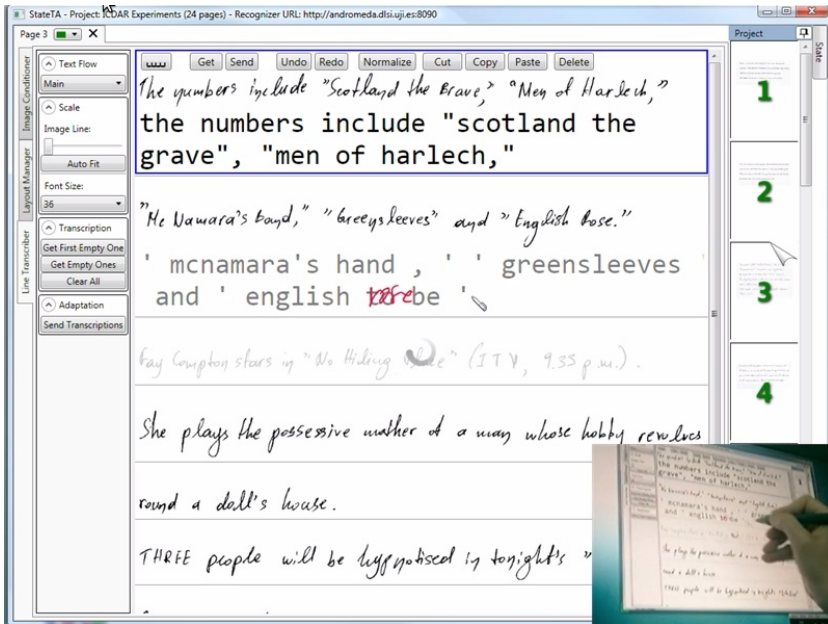 StateTA - Project: ICDAR Experiments (24 pages) - Recognizer URL: http://andromeda.dlsi.uji.es:8090
Page 3
Image Conditioner
Layout Manager
Line Transcriber
Text Flow
Main
Scale
Image Line:
Auto Fit
Font Size:
36
Transcription
Get First Empty One
Get Empty Ones
Clear All
Adaptation
Send Transcriptions
Get Send Undo Redo Normalize Cut Copy Paste Delete
The numbers include "Scotland the Brave," "Men of Harlech,"
the numbers include "scotland the
grave", "men of harlech,"
"Mc Namara's band," "Greensleeves" and "English Rose."
' mcnamara's hand , ' ' greensleeves '
and ' english to be '
rose
Fay Compton stars in "No Hiding Place" (ITV, 9.35 p.m.).
She plays the possessive mother of a man whose hobby revolves
round a doll's house.
THREE people will be hypnotised in tonight's "
Project
State
1
2
3
4
the numbers include "scotland the
grave", "men of harlech,"
' mcnamara's hand , '
and ' english to be